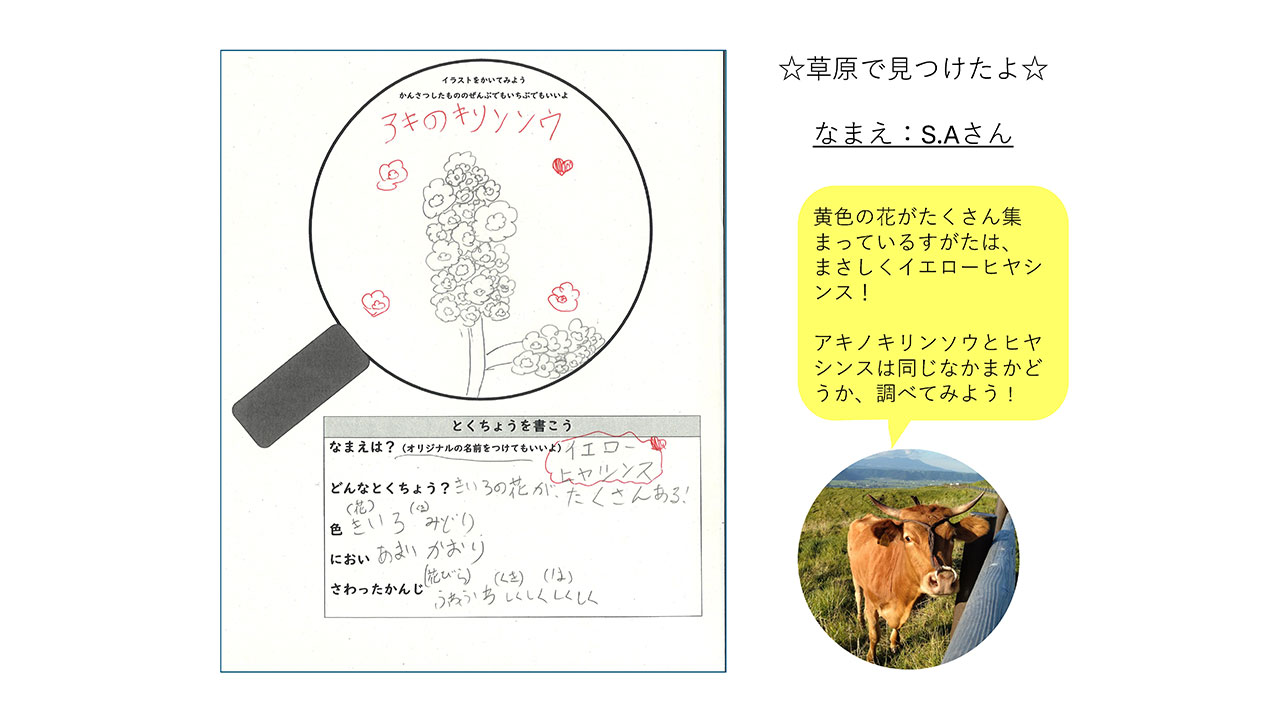 イラストをかいてみよう
かんさつしたもののぜんぶでもいちぶでもいいよ
アキのキリンソウ
とくちょうを書こう
なまえは?(オリジナルの名前をつけてもいいよ)
イエロー
ヒヤシンス
どんなとくちょう?きいろの花が、たくさんある!
(花)
色 きいろ みどり
におい あまいかおり
(花びら) (くき) (は)
さわったかんじ
☆草原で見つけたよ☆
なまえ:S.Aさん
黄色の花がたくさん集
まっているすがたは、
まさしくイエローヒヤシ
ンス!
アキノキリンソウとヒヤ
シンスは同じなかまかど
うか、調べてみよう!